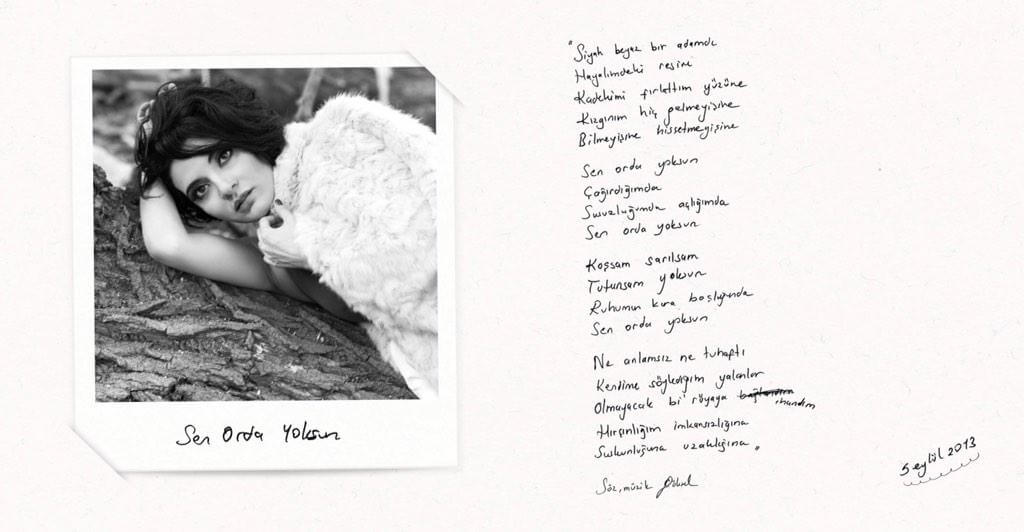 Sen Orda Yoksun
"Siyah beyaz bir adamdı
Hayalimdeki resim
Kadehimi fırlattım yüzüne
Kızgınım hiç gelmeyişine
Bilmeyişine hissetmeyişine
Sen orda yoksun
Çağırdığımda
Susuzluğumda açlığımda
Sen orda yoksun
Koşsam sarılsam
Tutunsam yoksun
Ruhumun kara boşluğunda
Sen orda yoksun
Ne anlamsız ne tuhaftı
Kendime söylediğim yalanlar
Olmayacak bi' rüyaya inandım
Hırçınlığım imkansızlığına
Suskunluğuna uzaklığına"
Söz, müzik Göksel
5 eylül 2013